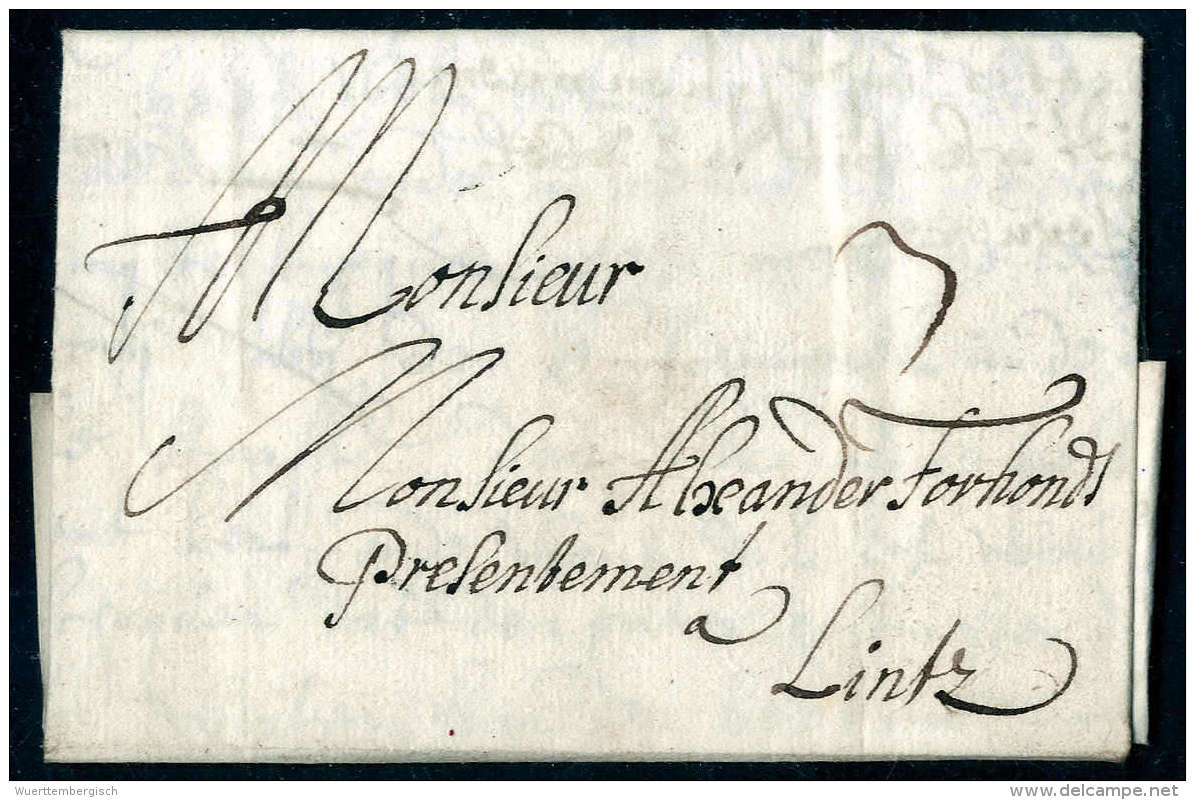 Monsieur
Monsieur Alexander Forhondt
Presentement
a
Lintz
Wuerttembergisch
www.delcampe.net